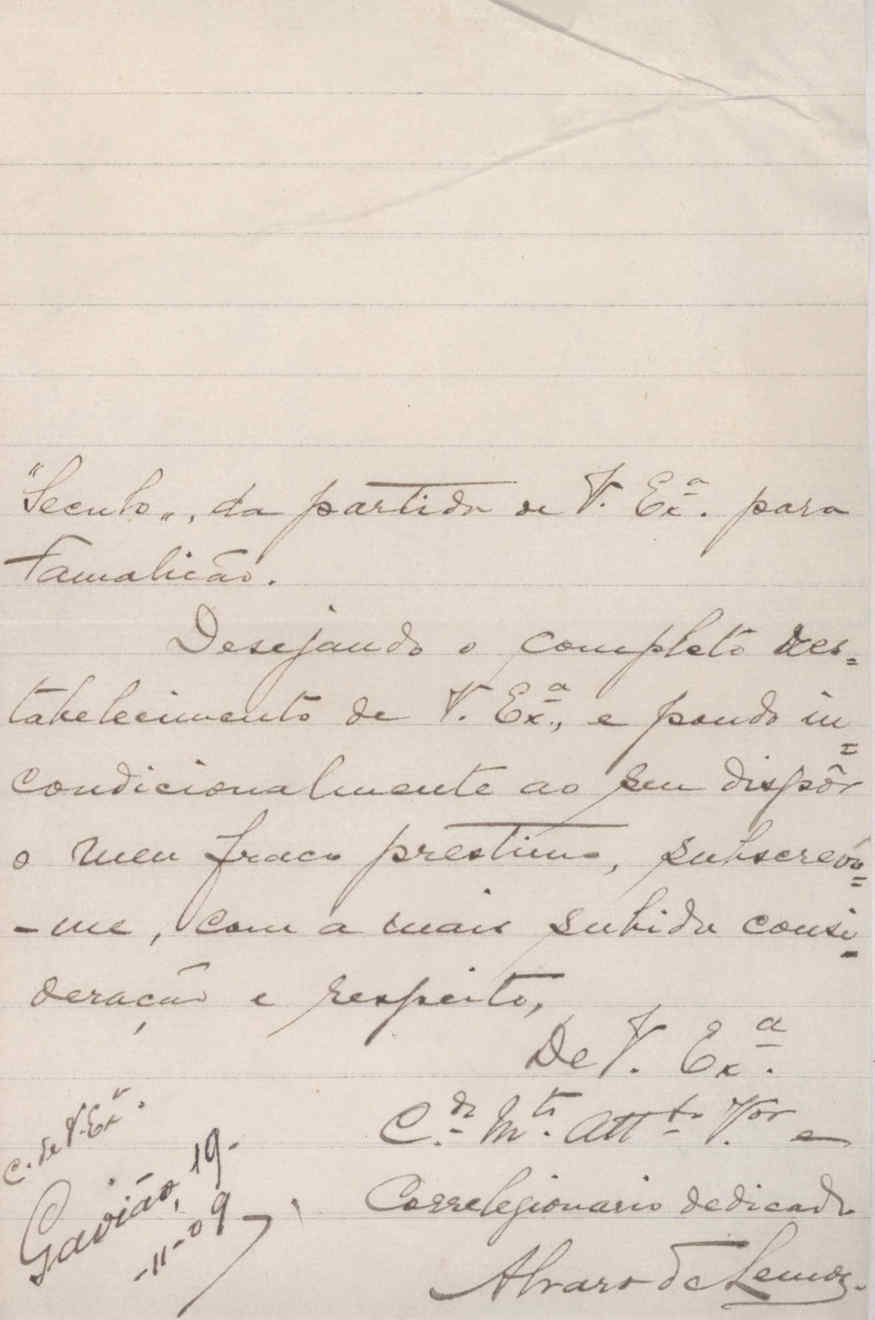 "Seculo", da partida de V. Ex.ª para
Famalicão.
Desejando o completo res=
tabelecimento de V. Ex.ª, e pondo in=
condicionalmente ao seu dispôr
o meu fraco prestimo, subscrevo=
-me, com a mais subida consi=
deração e respeito,
De V. Ex.ª
C.do M.to Att.to V.or e
Correlegionario dedicado
Alvaro de Lemos.
C. de V. Ex.ª
Gavião, 19.
-11-09